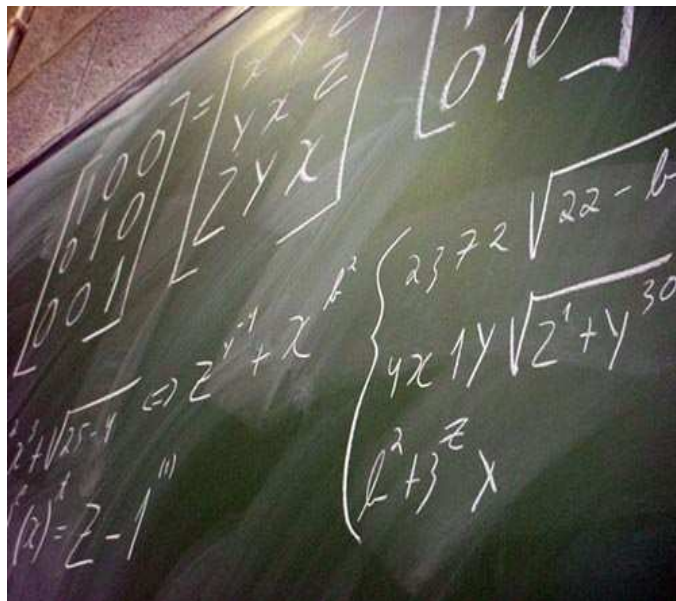 [1 0 0
0 1 0
0 0 1]
=
[x y z
y x z
z y x]
[
0 1 0]
x³+√25-y ⇔ z^(y-y) + x^(b²)
(x) = z - 1^(111)
{ 2372 √22 - b
yx 1y √z¹ + y³⁰
b² + 3^z x